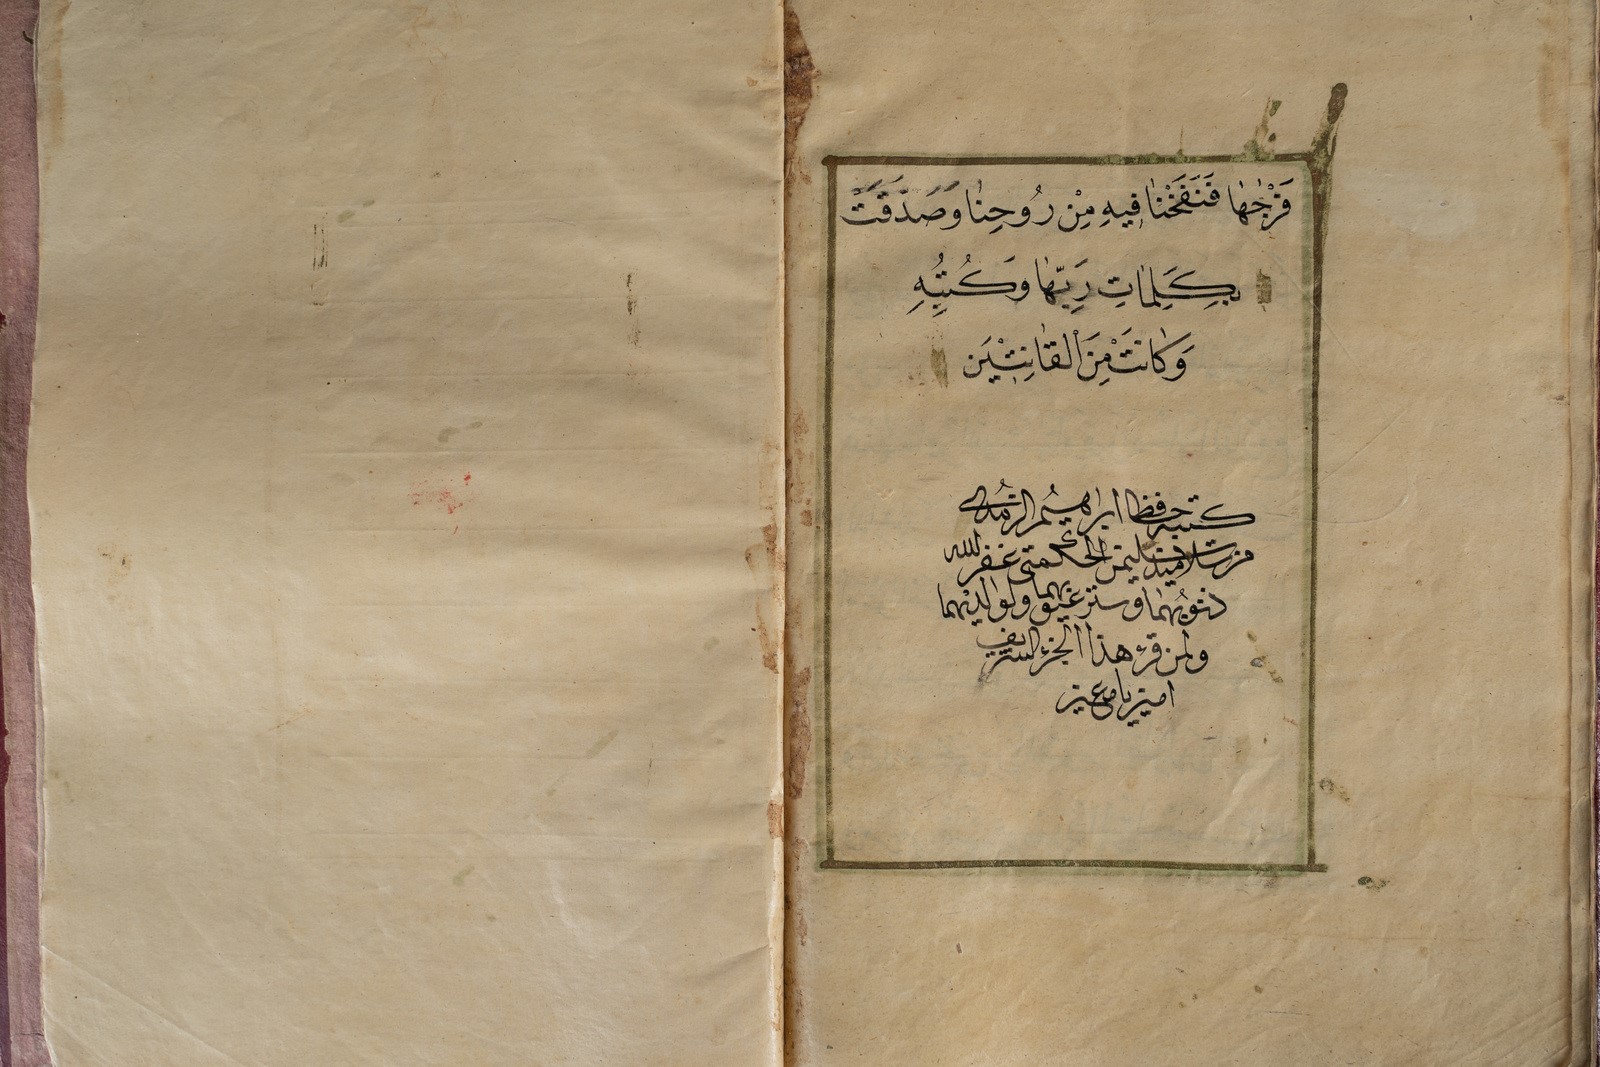 فَرْجَهٰا فَنَفَخْنٰا فِيهِ مِنْ رُوحِنٰا وَصَدَّقَتْ
بِكَلِمٰاتِ رَبِّهٰا وَكُتُبِهِ
وَكٰانَتْ مِنَ الْقٰانِتٖينَ
كتبه حافظ ابراهيم
من تلاميذ غفر الله
ذنوبهما وستر عيوبهما ولوالديهما
ولمن قرء هذا الجزء الشريف
امين يا معين